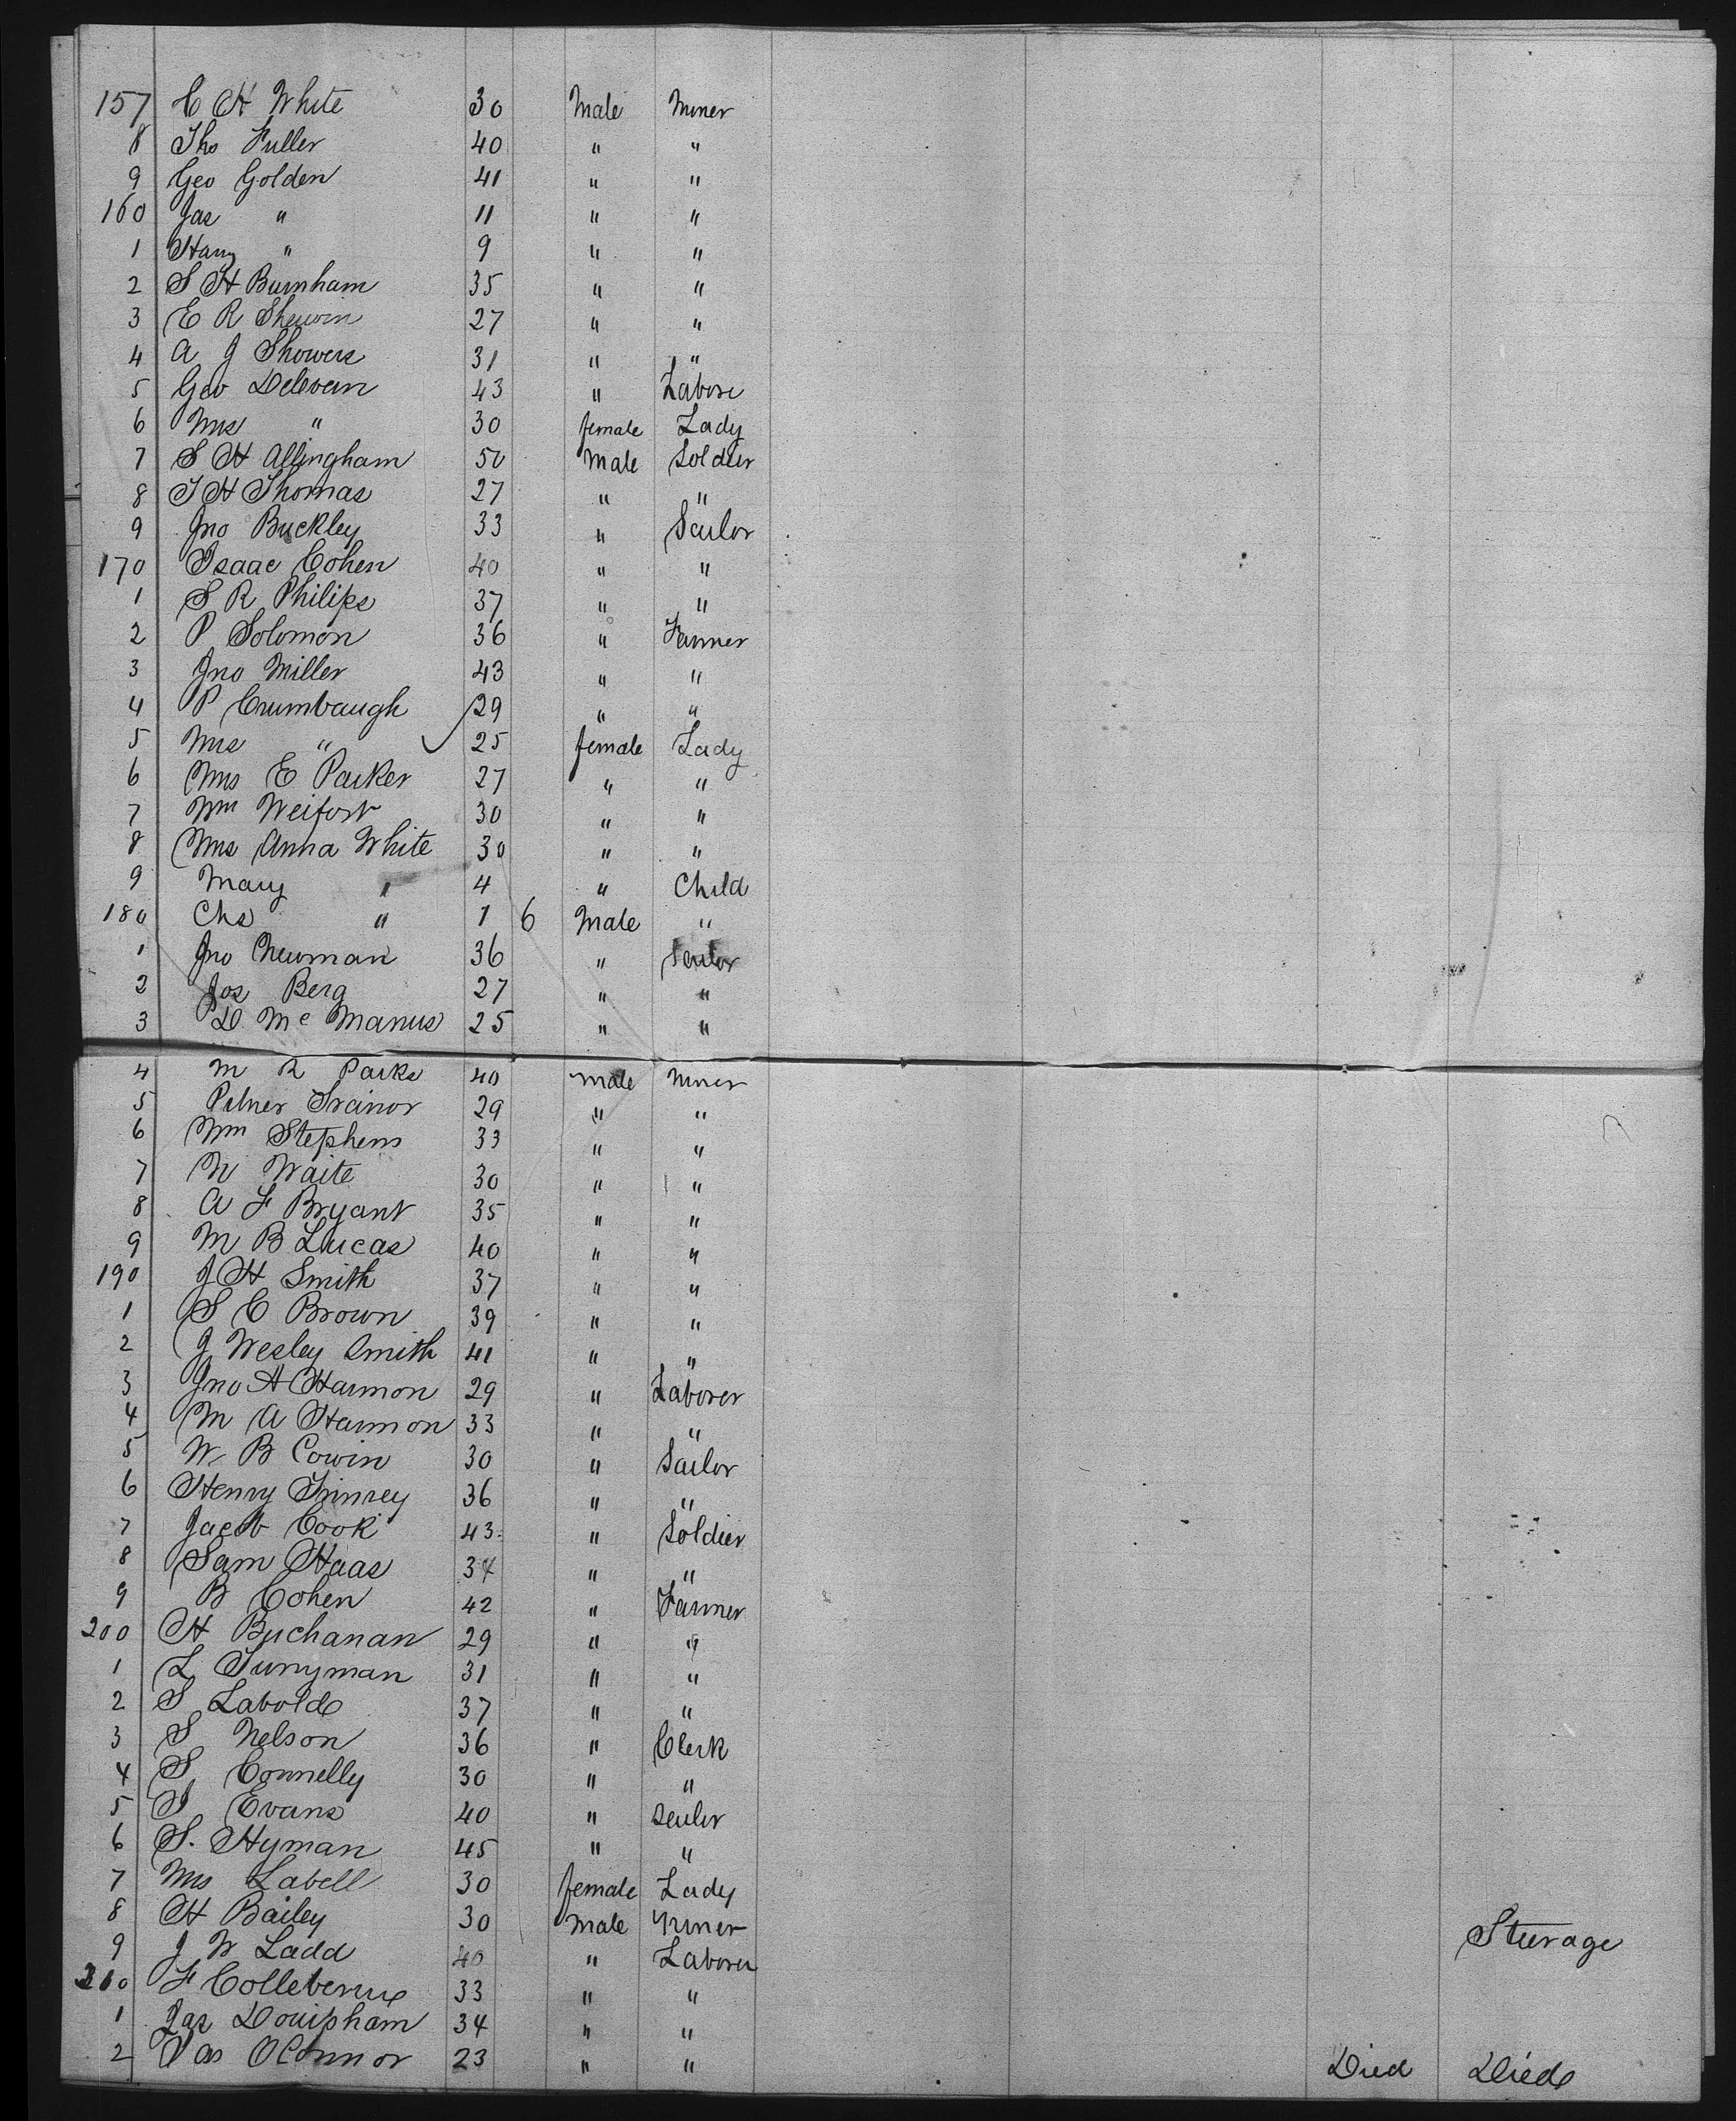 157 C H White 30 Male Miner
8 Ths Fuller 40 " "
9 Geo Golden 41 " "
160 Jas " 11 " "
1 Harry " 9 " "
2 S H Burnham 35 " "
3 E R Sherwin 27 " "
4 A J Showers 31 " "
5 Geo Delevan 43 " Labore
6 Mrs " 30 female Lady
7 S H Allingham 50 Male Soldier
8 T H Thomas 27 " "
9 Jno Buckley 33 " Sailor
170 Isaac Cohen 40 " "
1 S R Philips 37 " "
2 P Solomon 36 " Farmer
3 Jno Miller 43 " "
4 P Crumbaugh 29 " "
5 Mrs " 25 female Lady
6 Mrs E Parker 27 " "
7 Wm Weifort 30 " "
8 Mrs Anna White 30 " "
9 Mary " 4 " Child
180 Chs " 1 6 Male "
1 Jno Newman 36 " Sailor
2 Jos Berg 27 " "
3 D Mc Manus 25 " "
4 M R Parks 40 Male Miner
5 29 " "
6 Wm Stephens 33 " "
7 N Waite 30 " "
8 A F Bryant 35 " "
9 M B Lucas 40 " "
190 J H Smith 37 " "
1 S C Brown 39 " "
2 J Wesley Smith 41 " "
3 Jno A Harmon 29 " Laborer
4 M A Harmon 33 " "
5 W B Cowin 30 " Sailor
6 Henry 36 " "
7 Jacob Cook 43 " Soldier
8 Sam Haas 34 " "
9 B Cohen 42 " Farmer
200 H Buchanan 29 " "
1 L 31 " "
2 S Labold 37 " "
3 S Nelson 36 " Clerk
4 S Connelly 30 " "
5 Evans 40 " Sailor
6 S. Hyman 45 " "
7 Mrs Labell 30 female Lady
8 H Bailey 30 Male Miner Steerage
9 J W Ladd 40 " Laborer
210 F 33 " "
1 Jas 34 " "
2 OConnor 23 " " Died Died